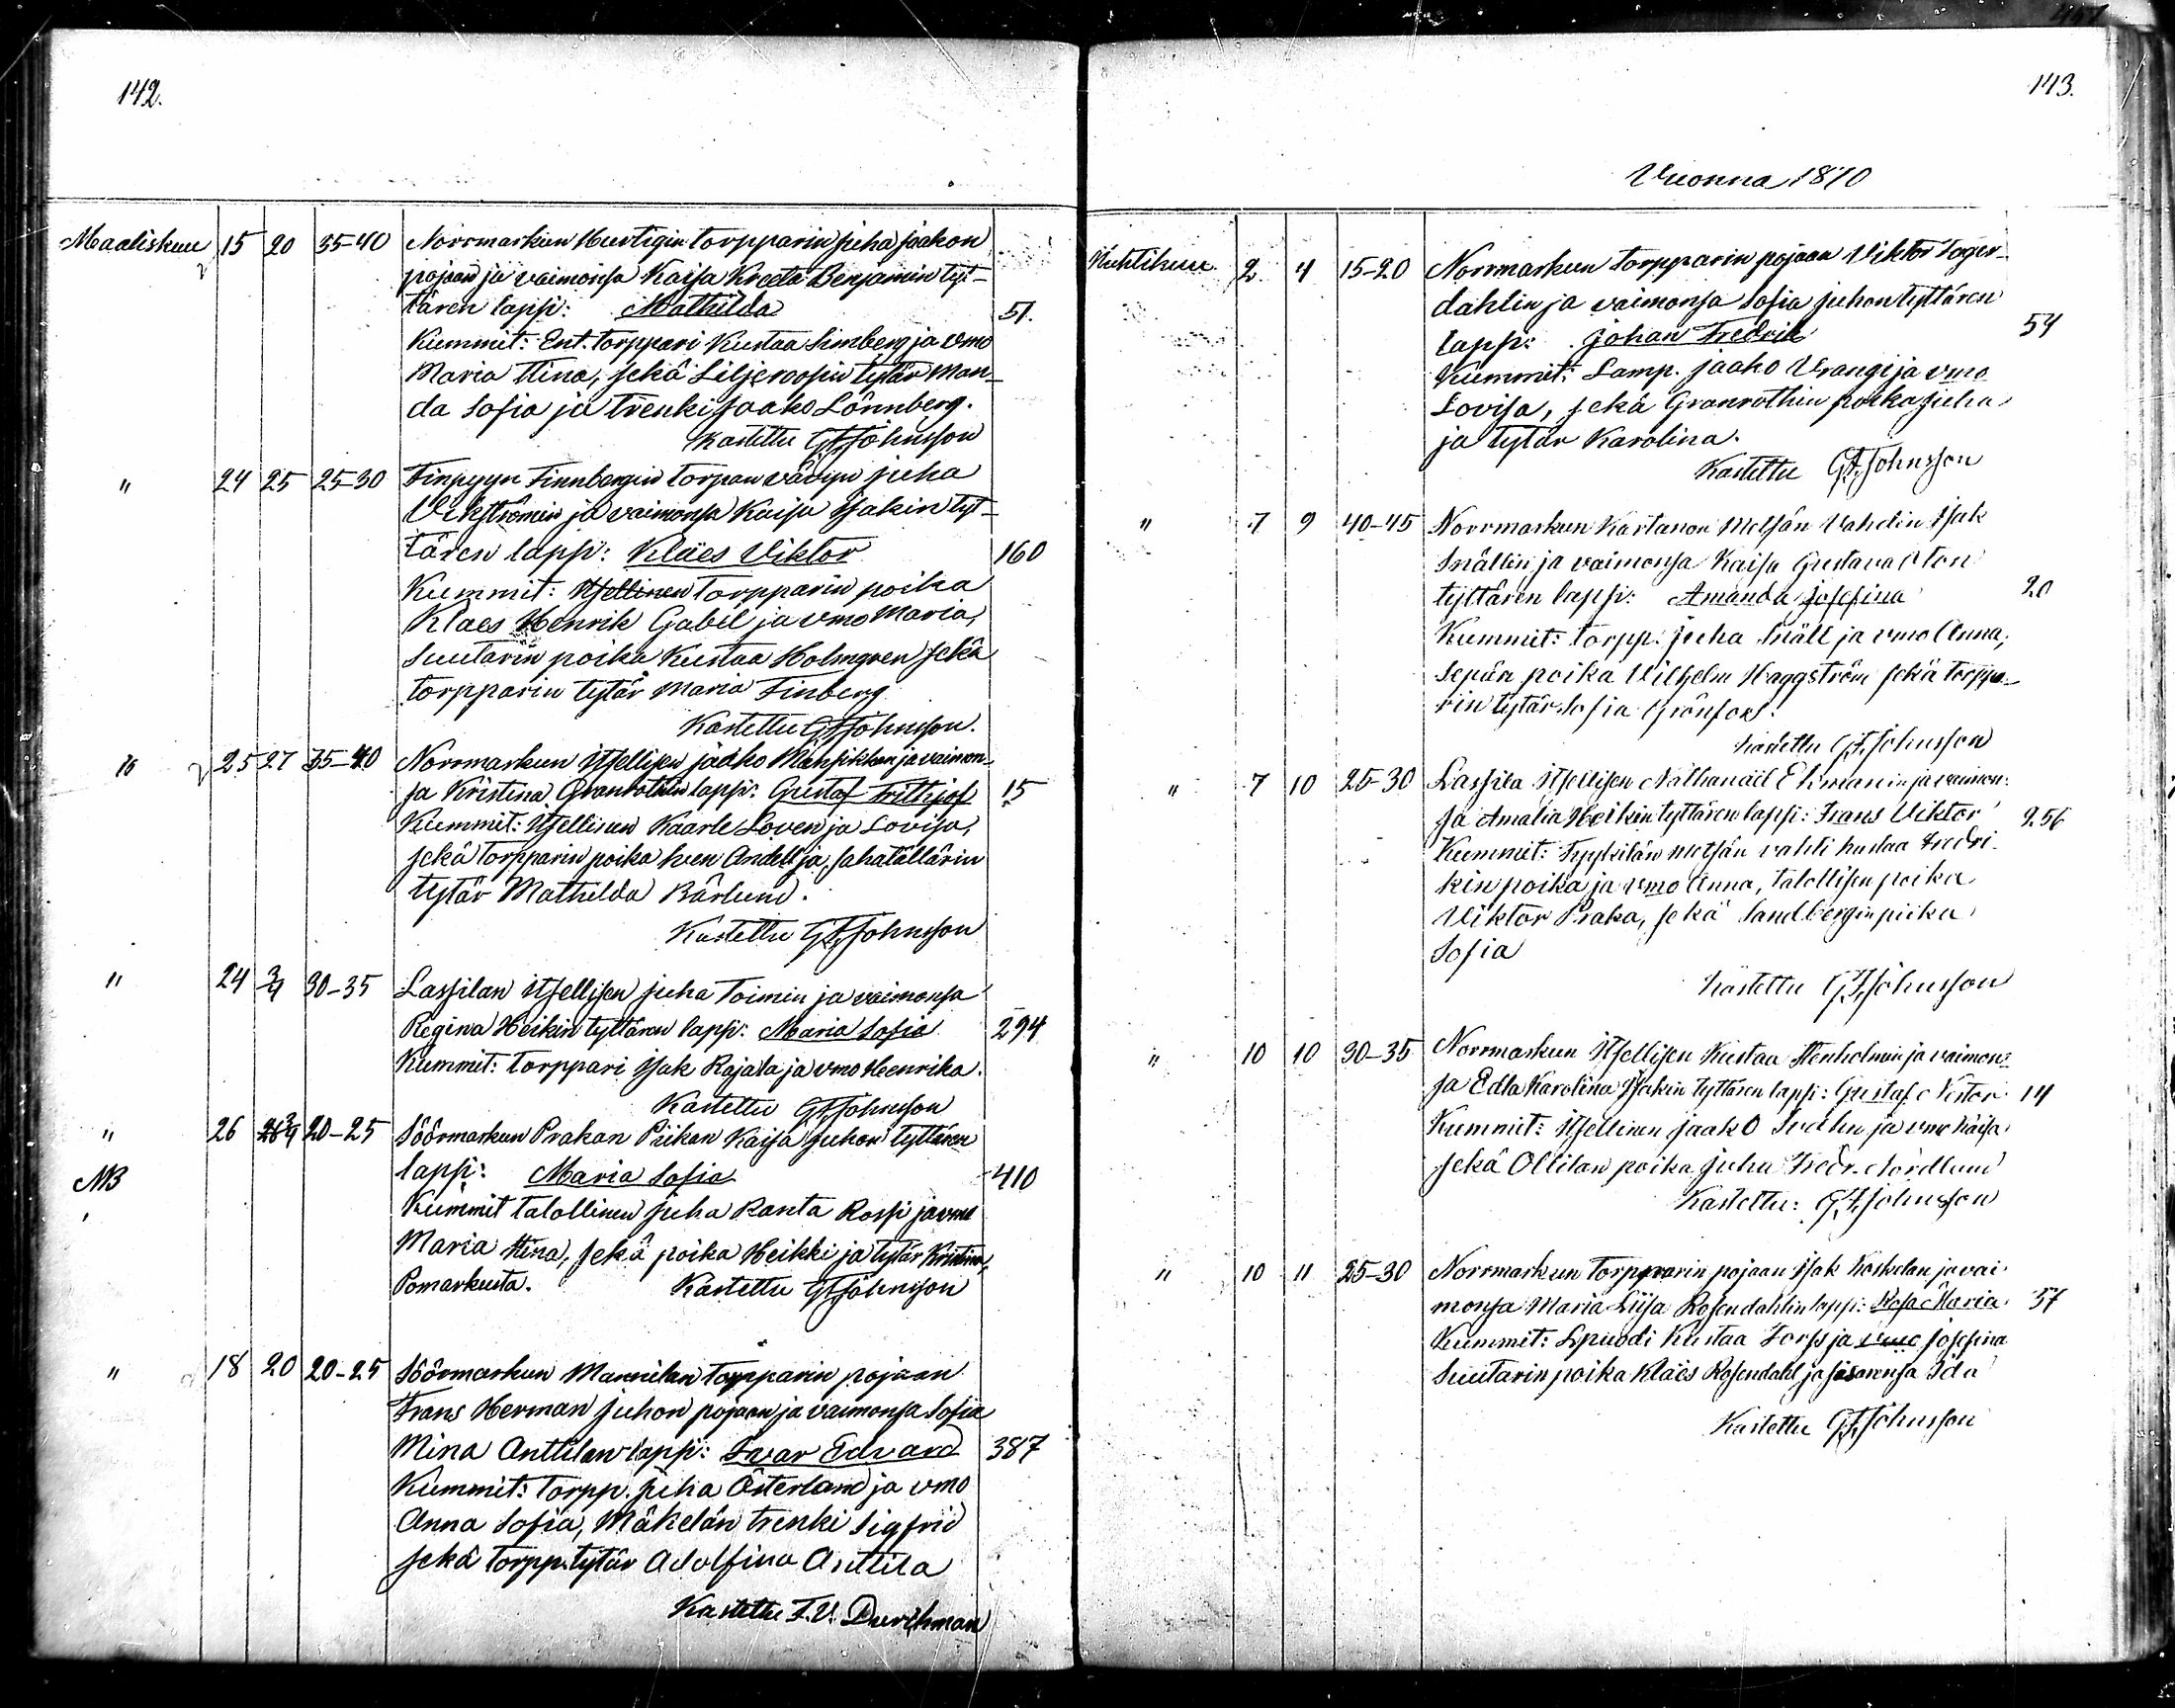 142.
Maaliskuu 15 20 35-40 Norrmarkun Hurtigin torpparin Juha Jaakon
pojan ja vaimonsa Kaisa Kreeta Benjamin tyt-
tären lapsi: Mathilda 51.
Kummit: Ent. torppari Kustaa Simberg ja vmo
Maria Stina, sekä Liljeroosin tytär Man-
da Sofia ja trenki Jaako Lönnberg.
Kastettu G.F. Johnsson
" 24 25 25-30 Finpyyn Finnbergin torpan vävyn Juha
Vikströmin ja vaimonsa Kaisa Isakin tyt-
tären lapsi: Klaes Viktor 160
Kummit: Itsellinen torpparin poika
Klaes Henrik Gabel ja vmo Maria,
Suutarin poika Kustaa Holmgren sekä
torpparin tytär Maria Finberg
Kastettu G.F. Johnsson.
" 25 27 35-40 Norrmarkun Itsellisen Jaako Mansikkan ja vaimon-
sa Kristina Granrothin lapsi: Gustaf Frithjof 15
Kummit: Itsellinen Kaarle Loven ja Lovisa,
sekä torpparin poika Sven Andell ja sahatällärin
tytär Mathilda Bärlund.
Kastettu G.F. Johnsson
" 24 3/4 30-35 Lassilan itsellisen Juha Toimin ja vaimonsa
Regina Heikin tyttären lapsi: Maria Sofia 294
Kummit: torppari Isak Rajala ja vmo Heenrika.
Kastettu G.F. Johnsson
" 26 3/4 20-25 Söörmarkun Prakan Piikan Kaisa Juhon tyttären
NB lapsi: Maria Sofia 410
Kummit talollinen Juha Ranta Rossi ja vmo
Maria Stina, sekä poika Heikki ja tytär Kristina,
Pomarkusta. Kastettu G.F. Johnsson
" 18 20 20-25 Söörmarkun Mannilan torpparin pojaan
Frans Herman Juhon pojaan ja vaimonsa Sofia
Mina Anttilan lapsi: Ivar Edvard 387
Kummit: torpp. Juha Österland ja vmo
Anna Sofia, Mäkelän trenki Sigfrid
sekä torpp. tytär Adolfina Anttila
Kastettu F.V. Durchman
143.
Vuonna 1870
Huhtikuu 2 4 15-20 Norrmarkun torpparin pojaan Viktor Sager-
dahlin ja vaimonsa Sofia Juhon tyttären
lapsi: Johan Fredrik 54
Kummit: Lamp. Jaako Vrangi ja vmo
Lovisa, sekä Granrothin poika Juha
ja tytär Karolina.
Kastettu G.F. Johnsson
" 7 9 40-45 Norrmarkun Kartanon Metsän Vahdin Isak
Snällin ja vaimonsa Kaisa Gustava Oton
tyttären lapsi: Amanda Josefina 20
Kummit: torpp. Juha Snäll ja vmo Anna,
Sepän poika Vilhelm Haggström sekä torppa-
rin tytär Sofia Grönfors.
Kastettu G.F. Johnsson
" 7 10 25-30 Lassila Itsellisen Nathanäel Ekmanin ja vaimon-
sa Amalia Heikin tyttären lapsi: Frans Viktor 256
Kummit: metsän vahti Kustaa Fredri-
kin poika ja vmo Anna, talollisen poika
Viktor Praka, sekä Sandbergin piika
Sofia
Kastettu G.F. Johnsson
" 10 10 30-35 Norrmarkun Itsellisen Kustaa Stenholmin ja vaimon-
sa Edla Karolina Isakin tyttären lapsi: Gustaf Nestor 14
Kummit: Itsellinen Jaako ja vmo Kaisa
sekä Ollilan poika Juha Fredr. Nordlund
Kastettu: G.F. Johnsson
" 10 11 25-30 Norrmarkun torpparin pojaan Isak Koskelan ja vai-
monsa Maria Liisa Rosendahlin lapsi: Rosa Maria 57
Kummit: Kustaa Forss ja vmo Josefina
Suutarin poika Kläes Rosendahl ja sisarensa Ida
Kastettu G.F. Johnsson